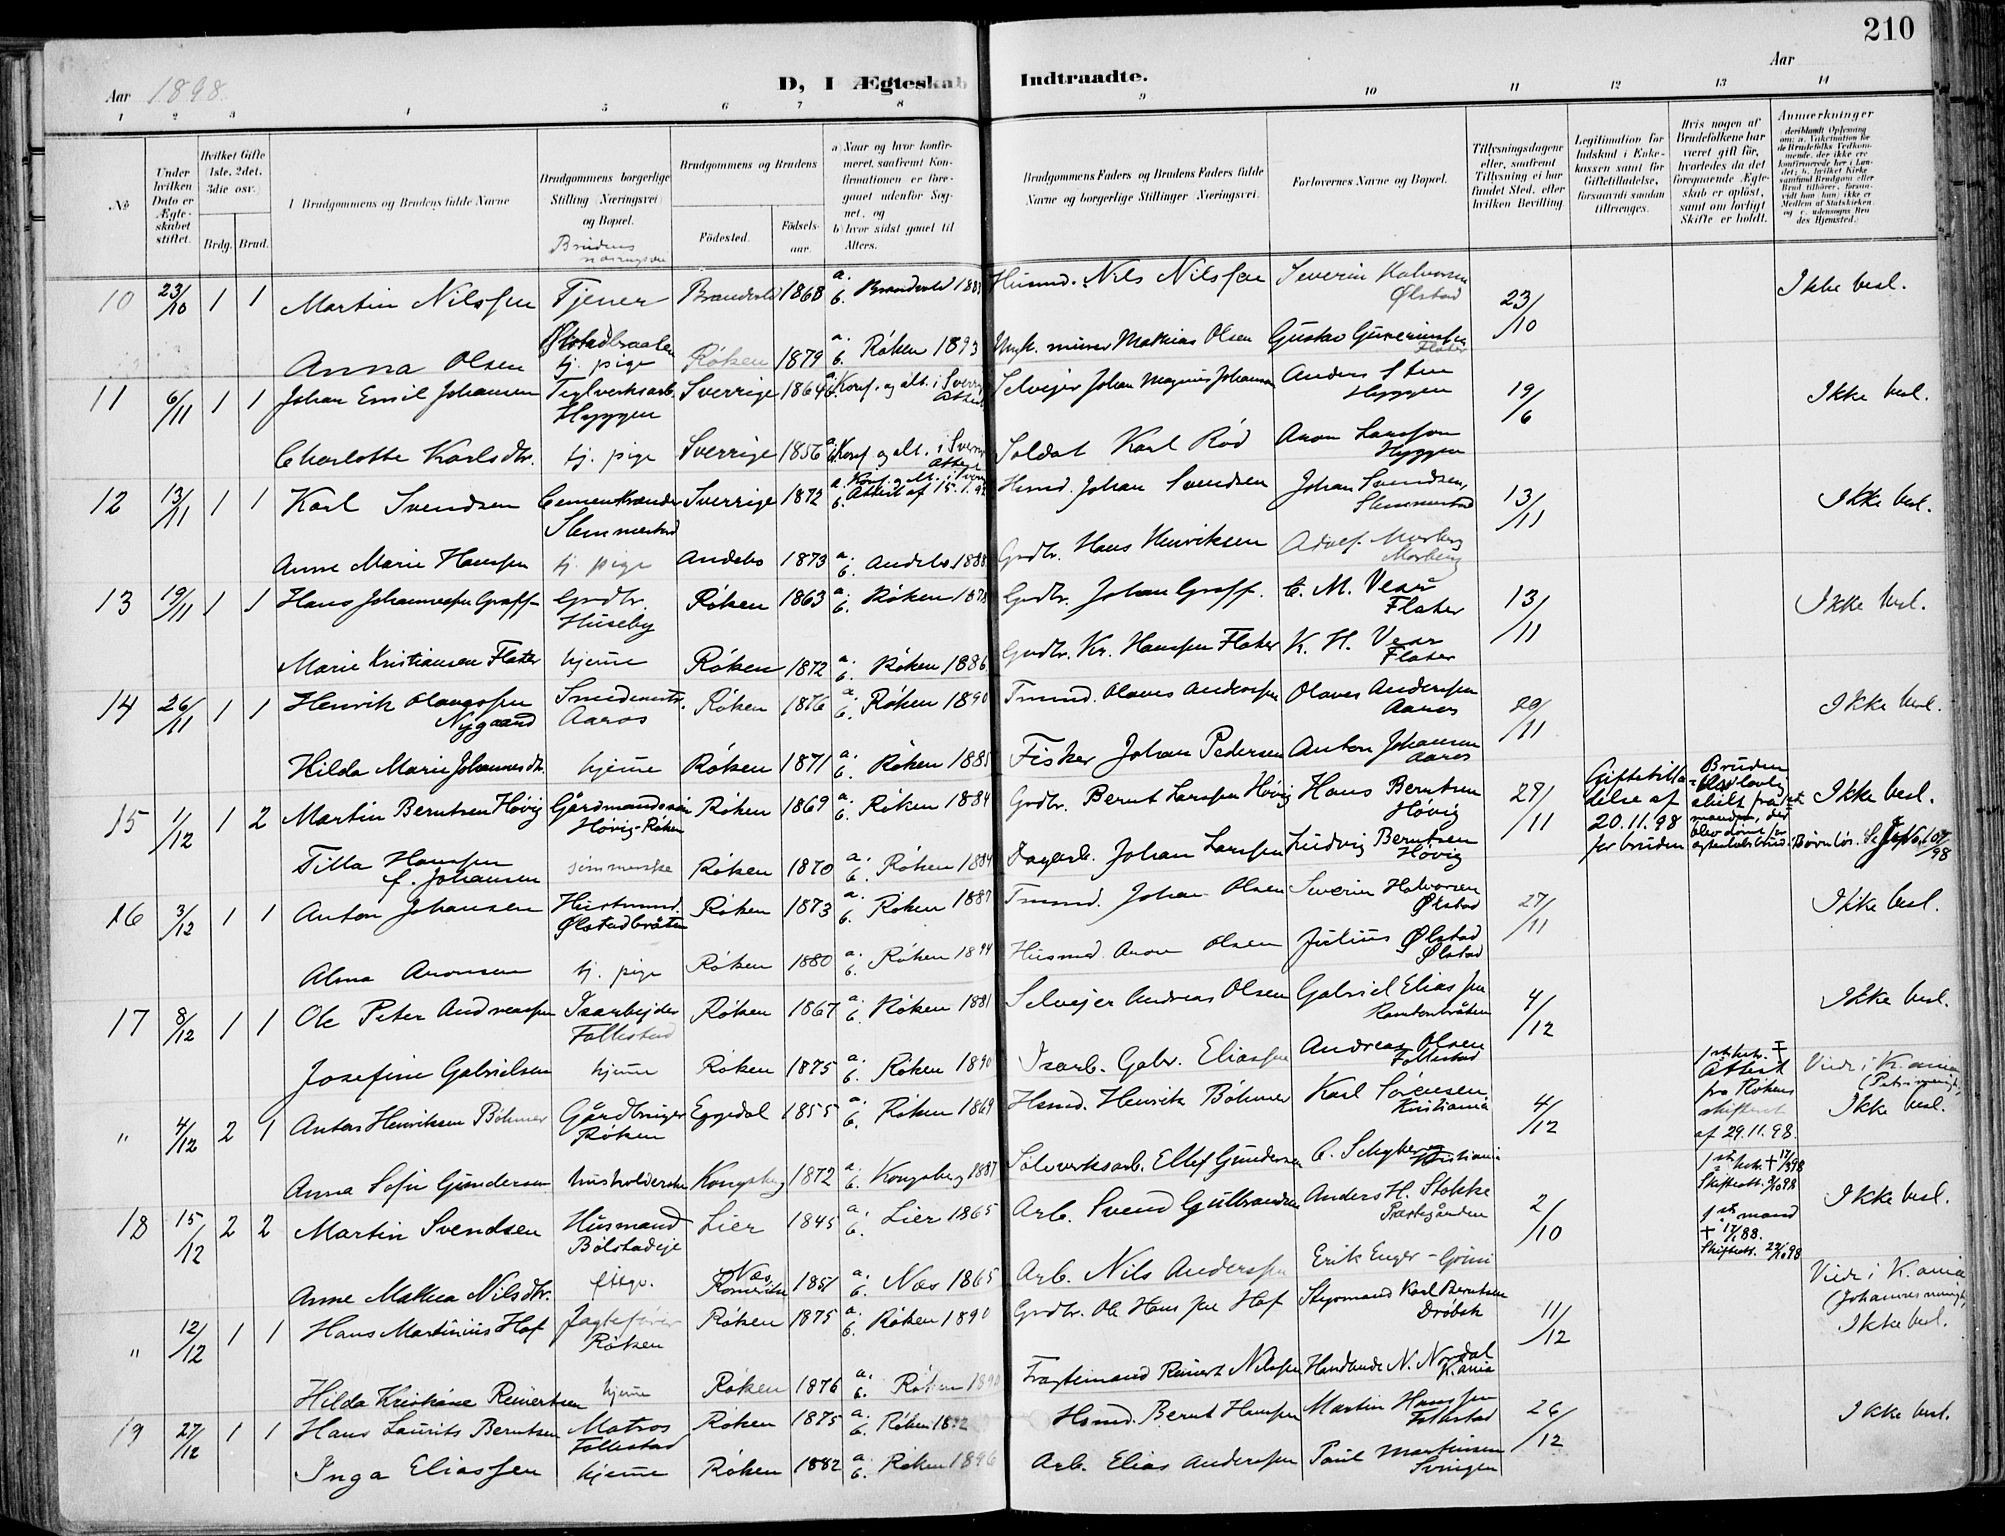 210
Aar 1898.
D, I Ægteskab Indtraadte.
Aar
1 2 3 4 5 6 7 8 9 10 11 12 13 14
No
Under hvilken Dato er Ægteskabet stiftet.
Hvilket Gifte 1ste, 2det, 3die osv.
Brdg. Brud.
Brudgommens og Brudens fulde Navne
Brudgommens borgerlige Stilling (Næringsvei) og Bopæl.
Brudens
Brudgommens og Brudens
Fødested.
Fødselsaar.
a) Naar og hvor konfirmeret, saafremt Konfirmationen er foregaaet udenfor Sognet, og
b) hvor sidst gaaet til Alters.
Brudgommens Faders og Brudens Faders fulde Navne og borgerlige Stillinger Næringsvei.
Forlovernes Navne og Bopæl.
Tillysningsdagene eller, saafremt Tillysning ei har fundet Sted, efter hvilken Bevilling.
Legitimation for Indskud i Enkekassen samt for Giftetilladelse, forsaavidt saadan tiltrænges.
Hvis nogen af Brudefolkene har været gift før, hvorledes da det foregaaende Ægteskab er opløst, samt om lovligt Skifte er holdt.
Anmærkninger
10 23/10 1 1 Martin Nilssen Tjener Brandvold 1868 a. b. Brandvold Husmd. Nils Nilssen Severin Halvorsen Ølstad 23/10 Ikke besl.
Ølstadbraaten
Anna Olsen tj. pige Røken 1879 a. b. Røken 1893 Mathias Olsen Gustav Flater
11 6/11 1 1 Johan Emil Johansen Teglverksarb. Hyggen Sverrige 1864 Konf. og alt. i Sverrig Attest Selveier Johan Magnus Johansen Anders Sten Hyggen 19/6 Ikke besl.
Charlotte Karlsdtr. tj. pige Sverrige 1856 Konf. og alt. i Sverrig Attest Soldat Karl Rød Aron Larsson Hyggen
12 13/11 1 1 Karl Svendsen Cementbrænder Slemmestad Sverrige 1872 a. Konf. og alt. i Sverrig b. Attest af 15. Hsmd. Johan Svendsen Johan Svendsen, Slemmestad 13/11 Ikke besl.
Anne Marie Hanssen tj. pige Andebo 1873 a. b. Andebo 1888 Grdbr. Hans Henriksen Adolf Morberg Morberg
13 19/11 1 1 Hans Johannessen Graff Grdbr. Huseby Røken 1863 a. b. Røken 1878 Grdbr. Johan Graff. C. M. Vear Flater 13/11 Ikke besl.
Marie Kristiansen Flater hjeme Røken 1872 a. b. Røken 1886 Grdbr. Kr. Hanssen Flater K. H. Vear Flater
14 26/11 1 1 Henrik Olavessen Nygaard Smedemstr. Aaros Røken 1876 a. b. Røken 1890 Tmmd. Olaves Anderssen Olaves Anderssen Aaros 20/11 Ikke besl.
Hilda Marie Johannesdtr. hjeme Røken 1871 a. b. Røken 1885 Fisker Johan Pedersen Anton Johansen Aaros
15 1/12 1 2 Martin Berntsen Høvig Gårdmandssøn Høvig-Røken Røken 1869 a. b. Røken 1884 Grdbr. Bernt Larssen Høvig Hans Berntsen Høvig 27/11 Giftetilladelse af 20.11.98 for bruden Bruden blev lovlig skilt fra manden, der blev dømt for egteskabsbrud. Ikke besl.
Tilla Hanssen f. Johansen Røken 1870 a. b. Røken 1884 Dagarb. Johan Larssen Ludvig Berntsen Høvig
16 3/12 1 1 Anton Johansen Husmand. Ølstadbråten Røken 1873 a. b. Røken 1887 Tmmd. Johan Olsen Severin Halvorsen Ølstad 27/11 Ikke besl.
Alma Aronsen tj. pige Røken 1880 a. b. Røken 1894 Husmd. Aron Olsen Julius Ølstad Ølstad
17 8/12 1 1 Ole Peter Andreassen Isarbejder Follestad Røken 1867 a. b. Røken 1881 Selvejer Andreas Olsen Gabriel Eliassen 4/12 Ikke besl.
Josefine Gabrielsen hjeme Røken 1875 a. b. Røken 1890 Isarb. Gabr. Eliassen Andreas Olsen Follestad
" 4/12 2 1 Anton Henriksen Böhmer Gårdbruger Røken Eggedal 1855 a. b. Røken 1869 Hsmd. Henrik Böhmer Karl Sørensen Kristiania 4/12 Attest fra Røkens skifteret af 29.11.98. Viedr i K.ania (Petri menigh.) Ikke besl.
Anna Sofie Gundersen husholderske Kongsberg 1872 a. b. Kongsberg 1887 Sølvverksarb. Ellef Gundersen Kristiania
18 15/12 2 2 Martin Svendsen Husmand Bølstadeje Lier 1845 a. b. Lier 1865 Arb. Svend Gulbrandsen Anders H. Stokke Prestegården 2/10 Ikke besl.
Anne Mathea Nilsdtr. Næs Romerike 1851 a. b. Næs 1865 Arb. Nils Anderssen Erik Enger - Grini 1ste mand
" 12/12 1 1 Hans Martinius Hof Jagtefører Røken Røken 1875 a. b. Røken 1890 Grdbr. Ole Hanssen Hof Styrmand Karl Berntsen Drøbak 11/12 Viedr i K.ania (Johannes menigh.) Ikke besl.
Hilda Kristiane Reinertsen hjeme Røken 1876 a. b. Røken 1890 Fragtemand Reinert Nilssen Handlende N. Nordal K.ania
19 27/12 1 1 Hans Laurits Berntsen Matros Follestad Røken 1875 a. b. Røken 1892 Hsmd. Bernt Hanssen Martin Hanssen Follestad 26/12 Ikke besl.
Inga Eliassen hjeme Røken 1882 a. b. Røken 1896 Arb. Elias Anderssen Paul Martinsen Svingen